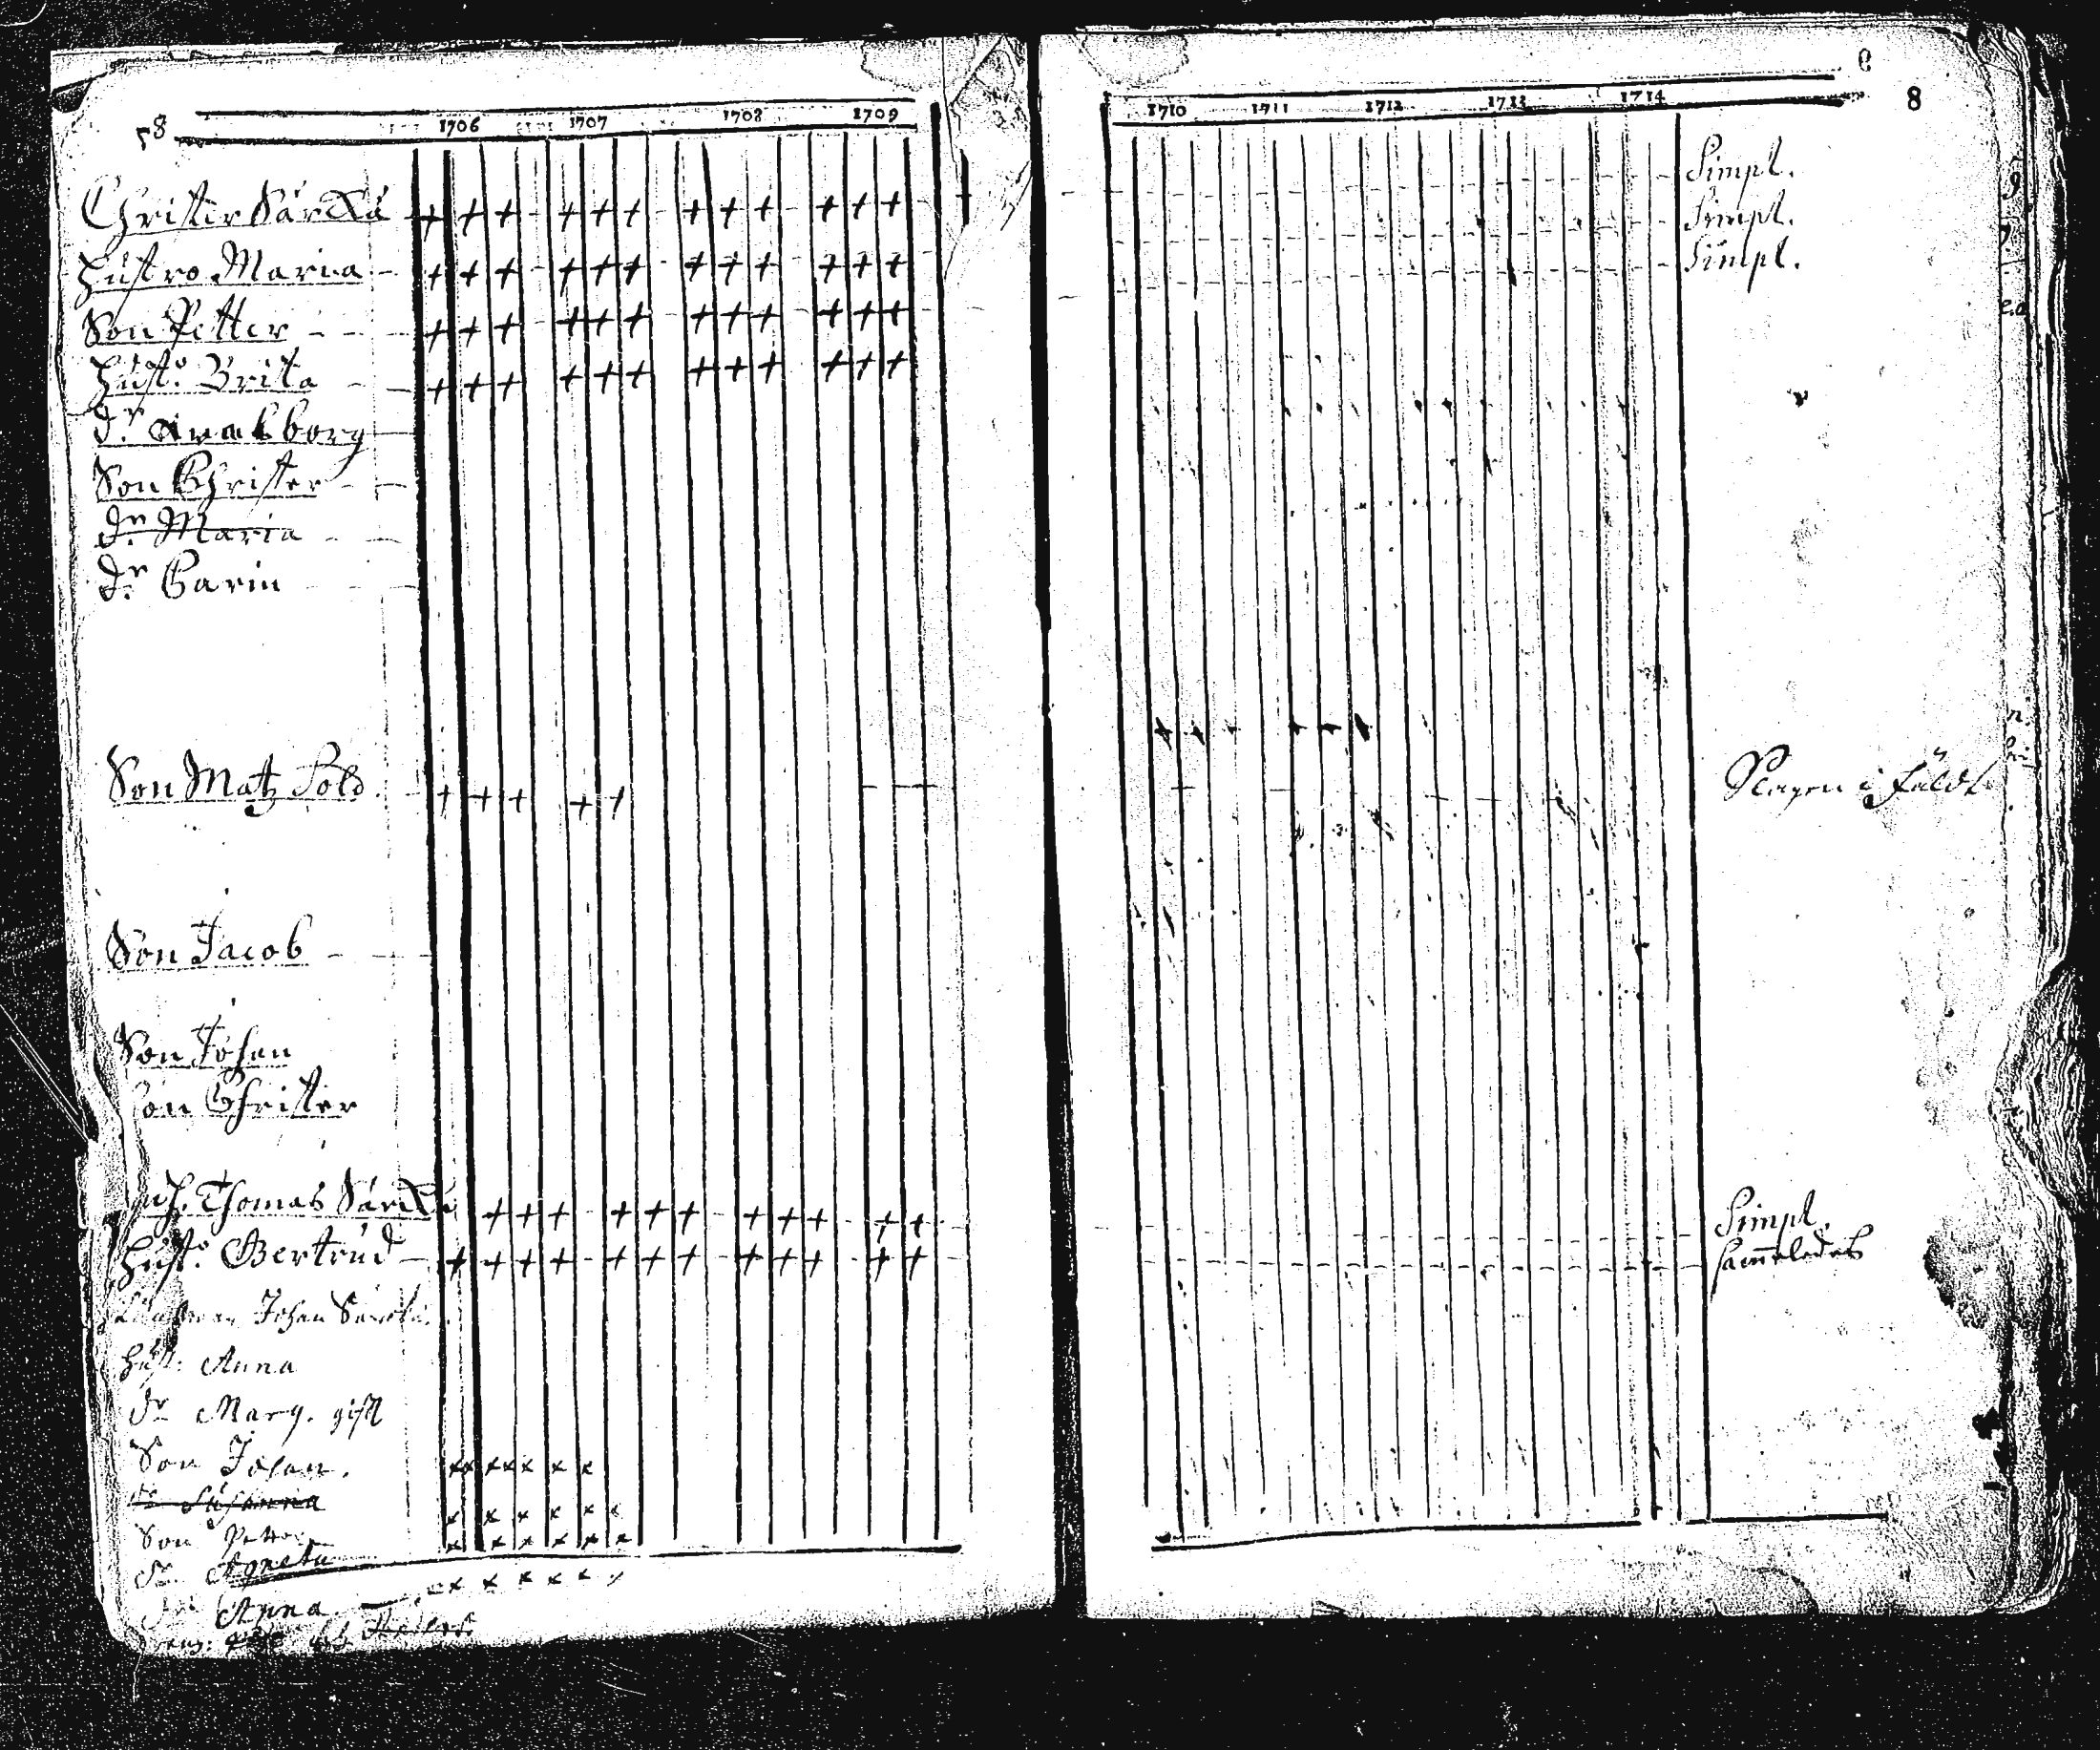 58 1706 1707 1708 1709
Christer Särkkä
Hustro Maria
Son Petter
Hust: Brita
dr: Walborg
Son Christer
dr: Maria
dr: Carin
Son Matz Sold.
Son Jacob
Son Johan
Son Christer
Inh. Thomas Särkkä
Hust: Gertrud
Johan Särkkä.
Hust: Anna
dr Marg. gift
Son Johan.
dr Susanna
Son Petter
dr Agneta
dr Anna
1710 1711 1712 1713 1714
8
Simpl.
Simpl.
Simpl.
Slagen i fäldt
Simpl.
Sam̄eledes